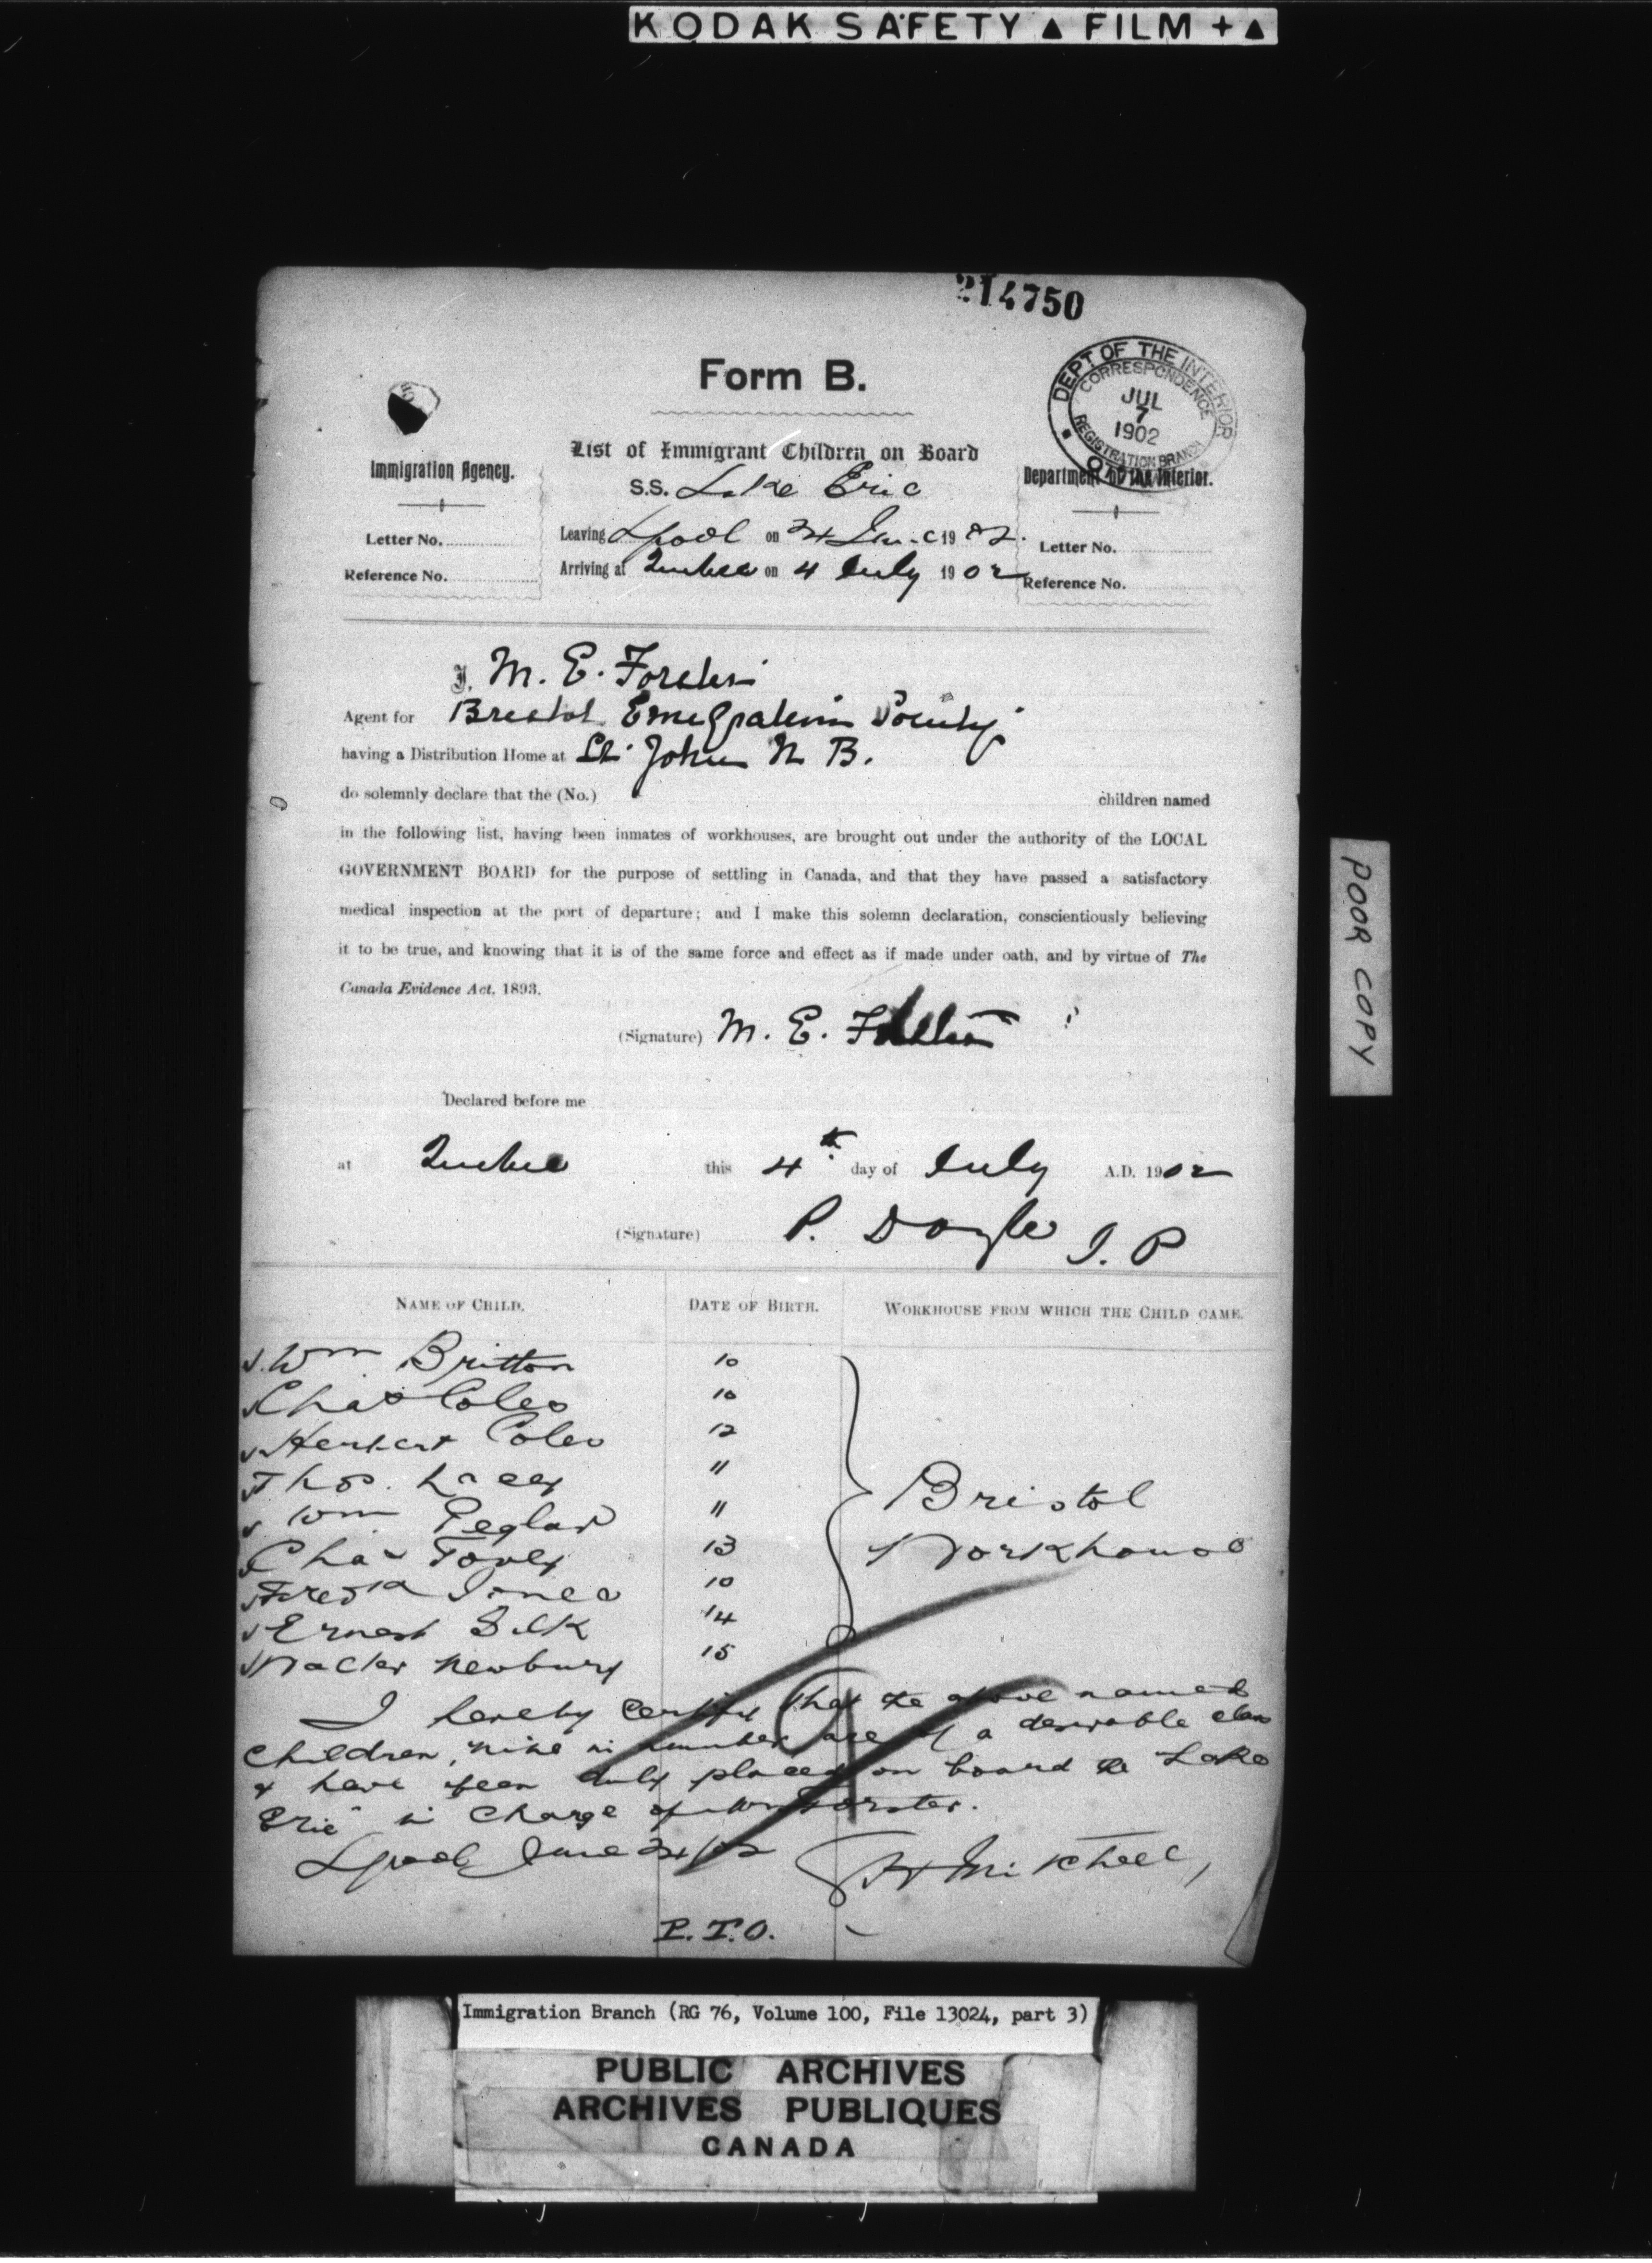 KODAK SAFETY ▲ FILM + ▲
214750
Form B.
DEPT OF THE INTERIOR
CORRESPONDENCE
JUL
7
1902
REGISTRATION BRANCH
List of Immigrant Children on Board
Immigration Agency.
Department of the Interior.
S.S. Lake Erie
Letter No.
Leaving Lpool on 24 June 1902.
Letter No.
Reference No.
Arriving at Quebec on 4 July 1902
Reference No.
I, M. E. Forster
Agent for Bristol Emigration Society
having a Distribution Home at St. John N B.
do solemnly declare that the (No.) children named
in the following list, having been inmates of workhouses, are brought out under the authority of the LOCAL
GOVERNMENT BOARD for the purpose of settling in Canada, and that they have passed a satisfactory
medical inspection at the port of departure; and I make this solemn declaration, conscientiously believing
it to be true, and knowing that it is of the same force and effect as if made under oath, and by virtue of The
Canada Evidence Act, 1893.
(Signature) M. E. Forster
Declared before me
at Quebec this 4th day of July A.D. 1902
(Signature) P. Doyle J. P
NAME OF CHILD. DATE OF BIRTH. WORKHOUSE FROM WHICH THE CHILD CAME.
Wm Britton 10
Chas Coles 10
Herbert Coles 12
Thos. Lacey 11
Wm Peglar 11
Bristol
Chas Tovey 13
Workhouse
Fredk Jones 10
Ernest Silk 14
Walter Newbury 15
I hereby certify that the above named
children, nine in number are of a desirable class
& have been duly placed on board the "Lake
Erie" in charge of Mrs Forster.
Lpool June 24/02 Mitchell,
P.T.O.
POOR COPY
Immigration Branch (RG 76, Volume 100, File 13024, part 3)
PUBLIC ARCHIVES
ARCHIVES PUBLIQUES
CANADA